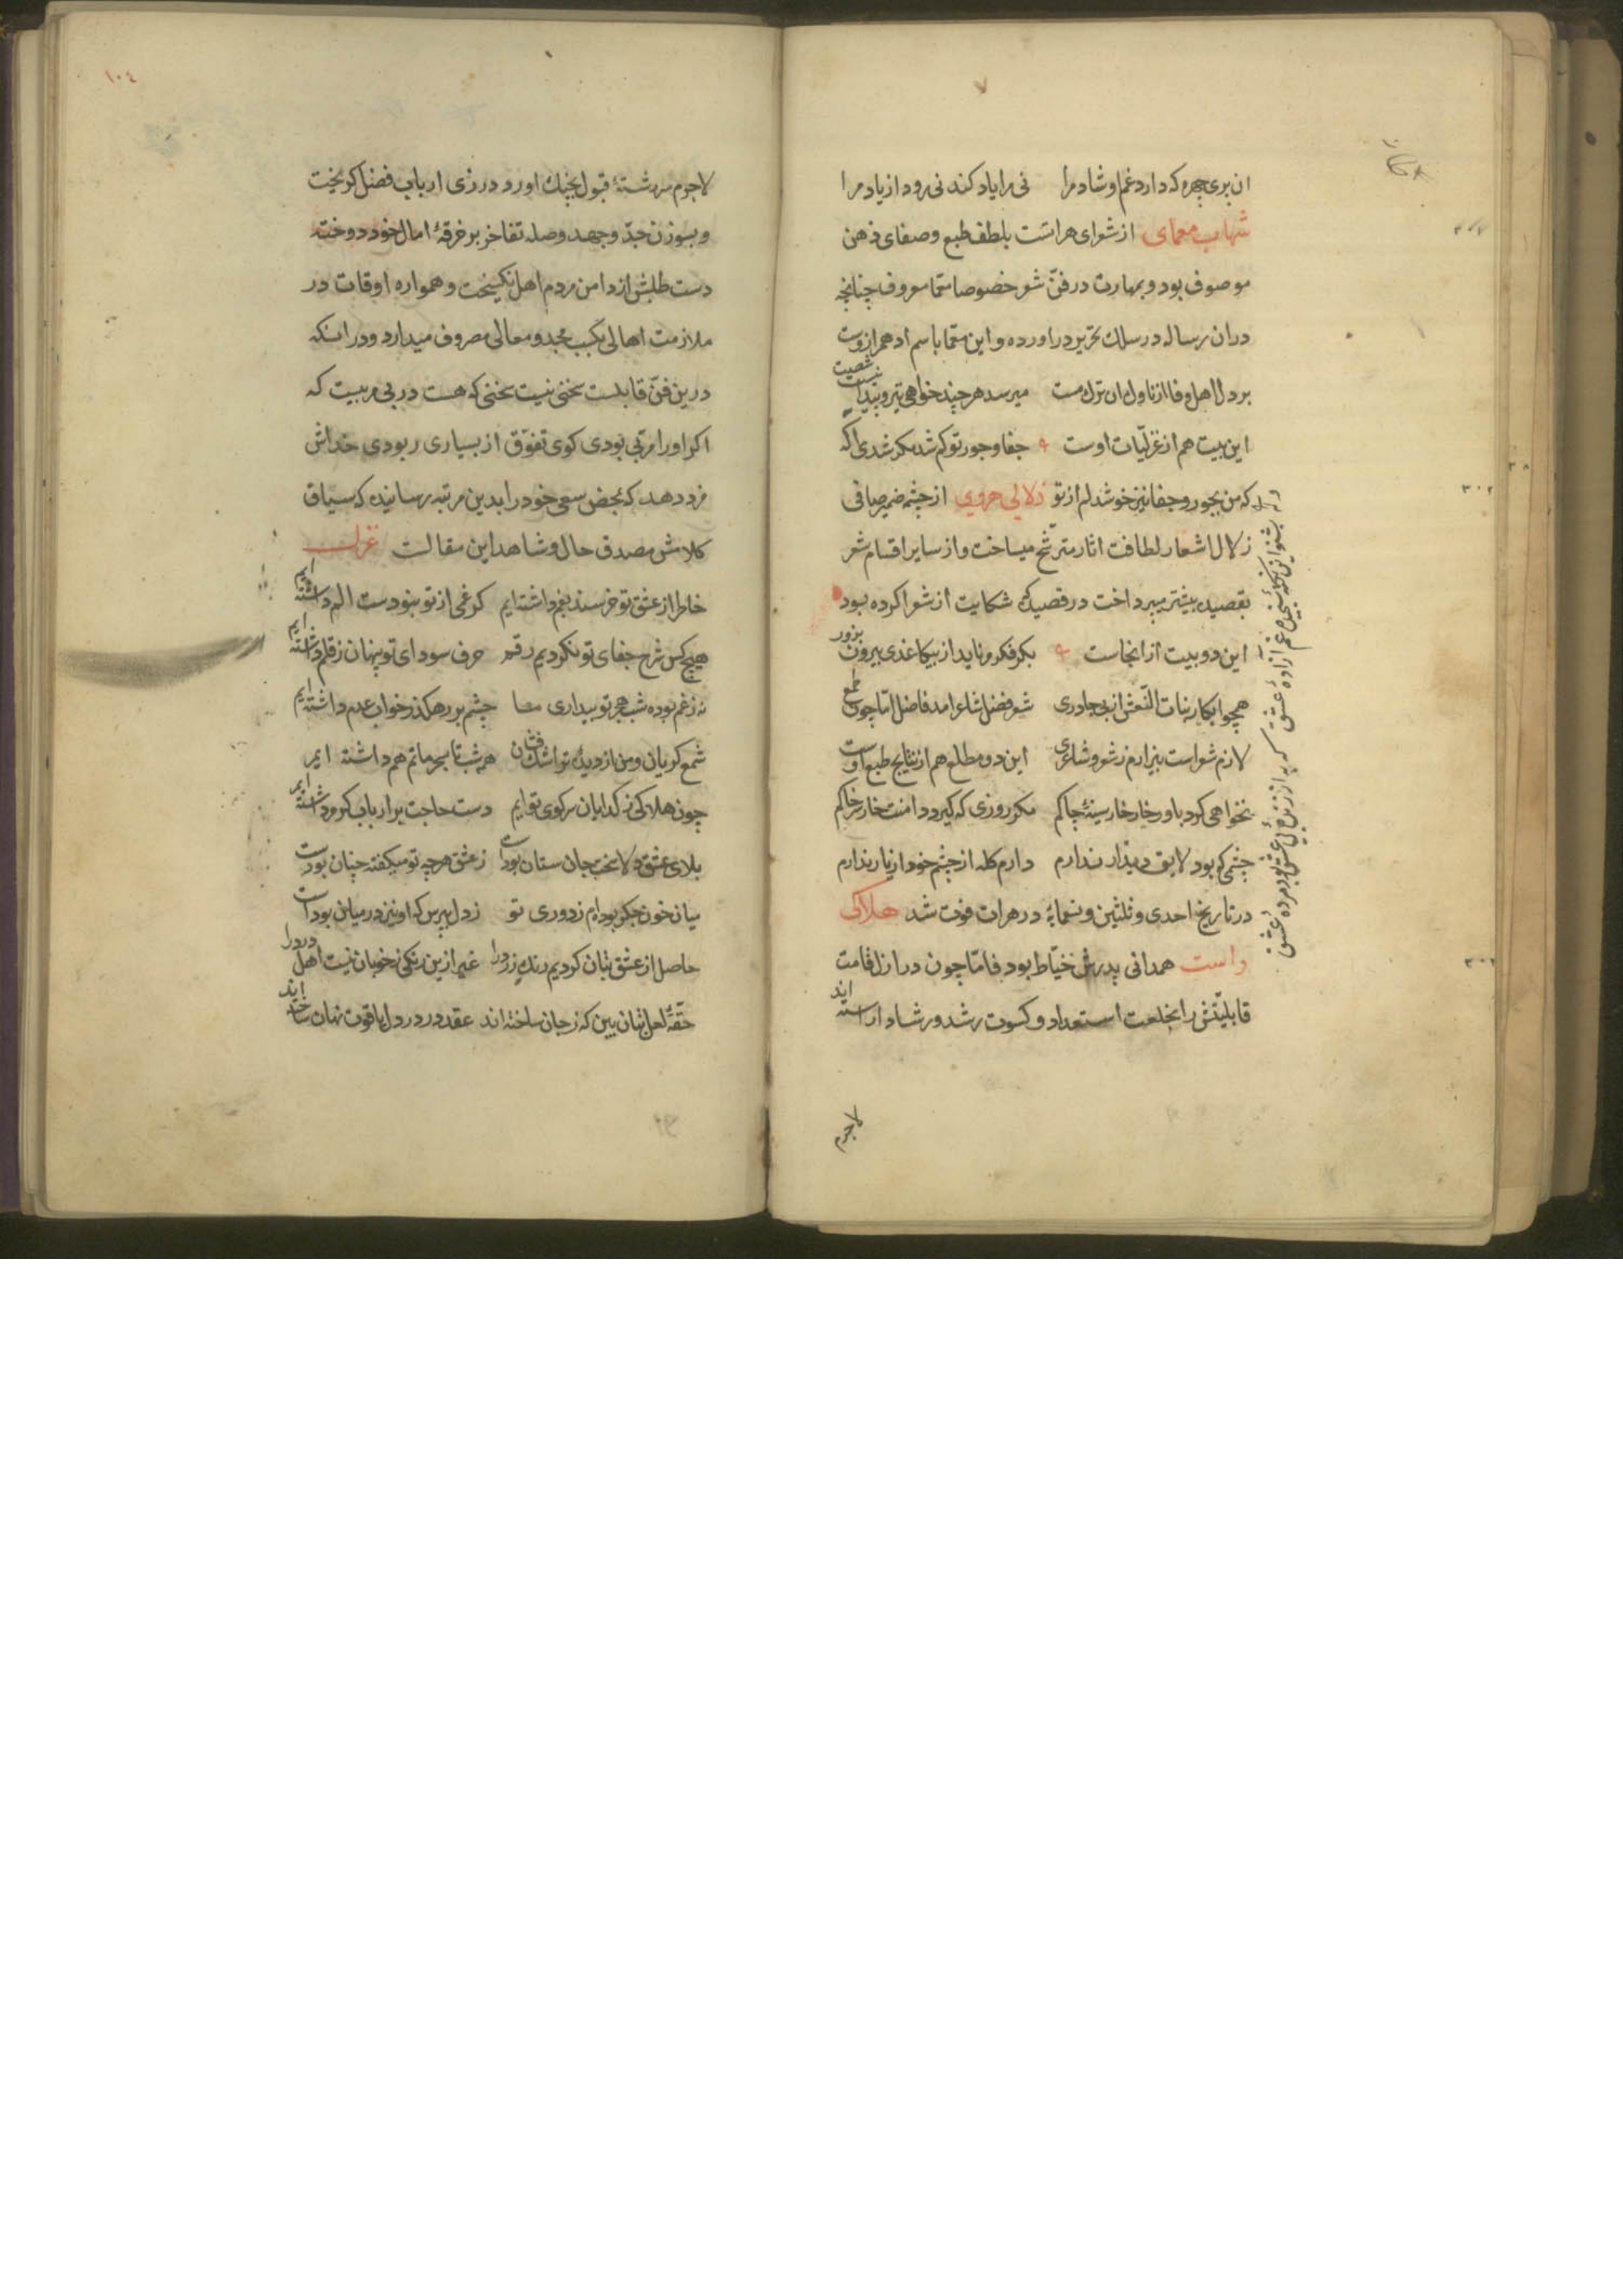 ان پری چهره که دارد غم او شاد مرا نی مرا یاد کند نی رود از یاد مرا
شهاب معمای از شعرای هراتست بلطف طبع وصفای ذهن
موصوف بود و بمهارت در فنّ شعر خصوصا معمّا معروف چنانچه
دران رساله در سلك تحریر دراورده و این معمّا باسم ادهم ازوست
بر دل اهل وفا از ناوك ان ترك مست میرسد هر چند خواهی تیر و پیدا نیست شصت
این بیت هم از غزلیّات اوست جفا و جور تو کم شد مکر شدی اکه
که من بجور و جفا نیز خوشدلم از تو زلالی هروی از چشم ضمیر صافی
زلال اشعار لطافت اثار مترشّح میساخت و از سایر اقسام شعر
بقصیده بیشتر میپرداخت در قصیدۀ که شکایت از شعرا کرده بود
این دو بیت از انجاست بکر فکرم ناید از بیکاغذی بیرون بزور
همچو ابکار بنات النّعش از بی چادری شعر فضل شاعر امد فاضل امّا چون طمع
لازم شعر است بیزارم ز شعر و شاعری این دو مطلع هم از نتایج طبع اوست
نخواهی کرد باور خار خار سینۀ چاکم مکر روزی که کیرد دامنت خار سر خاکم
چشمی که بود لایق دیدار ندارم دارم کله از چشم خود از یار ندارم
در تاریخ احدی و ثلثین و تسعمایۀ در هرات فوت شد هلاکی
همدانی پدرش خیّاط بود فامّا چون در ازل قامت
قابلیّتش را بخلعت استعداد و کسوت رشد و رشاد اراسته اند
لاجرم
١٠٤
لاجرم سر رشتۀ قبول بچنك اورد و در زی ارباب فضل کریخت
و بسوزن جدّ و جهد وصله تفاخر بر خرقۀ امال خود دوخته
دست طلبش از دامن مردم اهل نکسیخت و همواره اوقات در
ملازمت اهالی بکسب مجد و معالی مصروف میدارد و در انکه
درین فنّ قابلست سخنی نیست سخنی که هست در بی مربیست که
اکر او را مربّی بودی کوی تفوّق از بسیاری ربودی خداش
مزد دهد که بمحض سعی خود را بدین مرتبه رسانیده که سیاق
کلامش مصدق حال و شاهد این مقالست غزل
خاطر از عشق تو خرسند بغم داشته ایم کر غمی از تو نبودست الم داشته ایم
هیچ کس شرح جفای تو نکردیم رقم حرف سودای تو پنهان ز قلم داشته ایم
نه ز غم بوده شب هجر تو بیداری ما چشم بر رهکذر خواب عدم داشته ایم
شمع کریان و من از دیدۀ تر اشك فشان همه شب تا سحر ماتم هم داشته ایم
چون هلاکی ز کدایان سر کوی توایم دست حاجت بر ارباب کرم داشته ایم
بلای عشق دلا سخت جان ستان بودست ز عشق هر چه تو میکفته چنان بودست
میان خون جکر بوده‌ام ز دوری تو ز دل بپرس که او نیز در میان بودست
حاصل از عشق بتان کردیم رنك زرد را غیر ازین رنکی ز خوبان نیست اهل درد را
حقّۀ لعل بتان بین که ز جان ساخته‌اند عقد در در دل یاقوت نهان ساخته اند